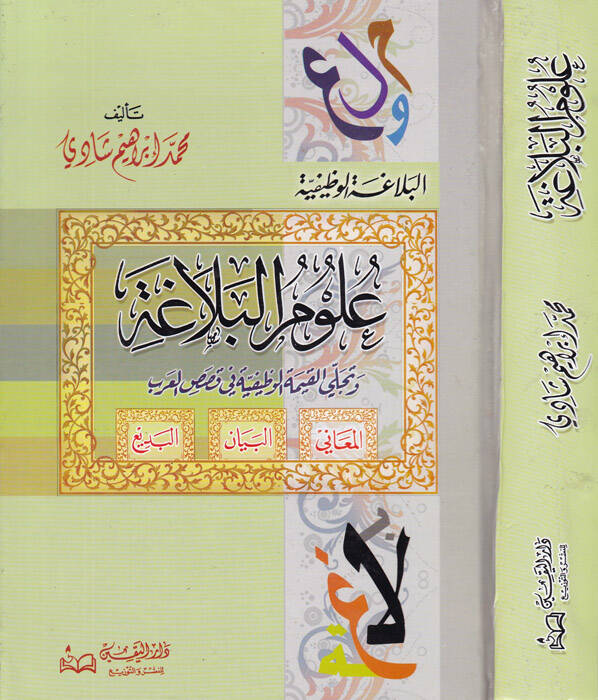 علوم
تأليف
محمد إبراهيم شادي
البلاغة الوظيفية
عُلُومُ البَلَاغَةِ
وتجلي القيمة الوظيفية في قصص العرب
المعاني
البيان
البديع
بلاغة
دار اليقين
للنشر والتوزيع
علوم البلاغة
محمد إبراهيم شادي
دار اليقين
للنشر والتوزيع